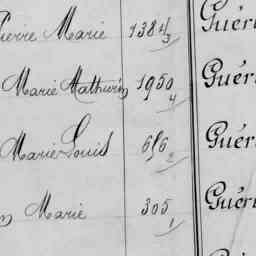 Pierre Marie 1384/3 Guér
Marie Mathurin 1950/4 Guér
Marie Louis 656/2 Guér
Marie 305/1 Guér